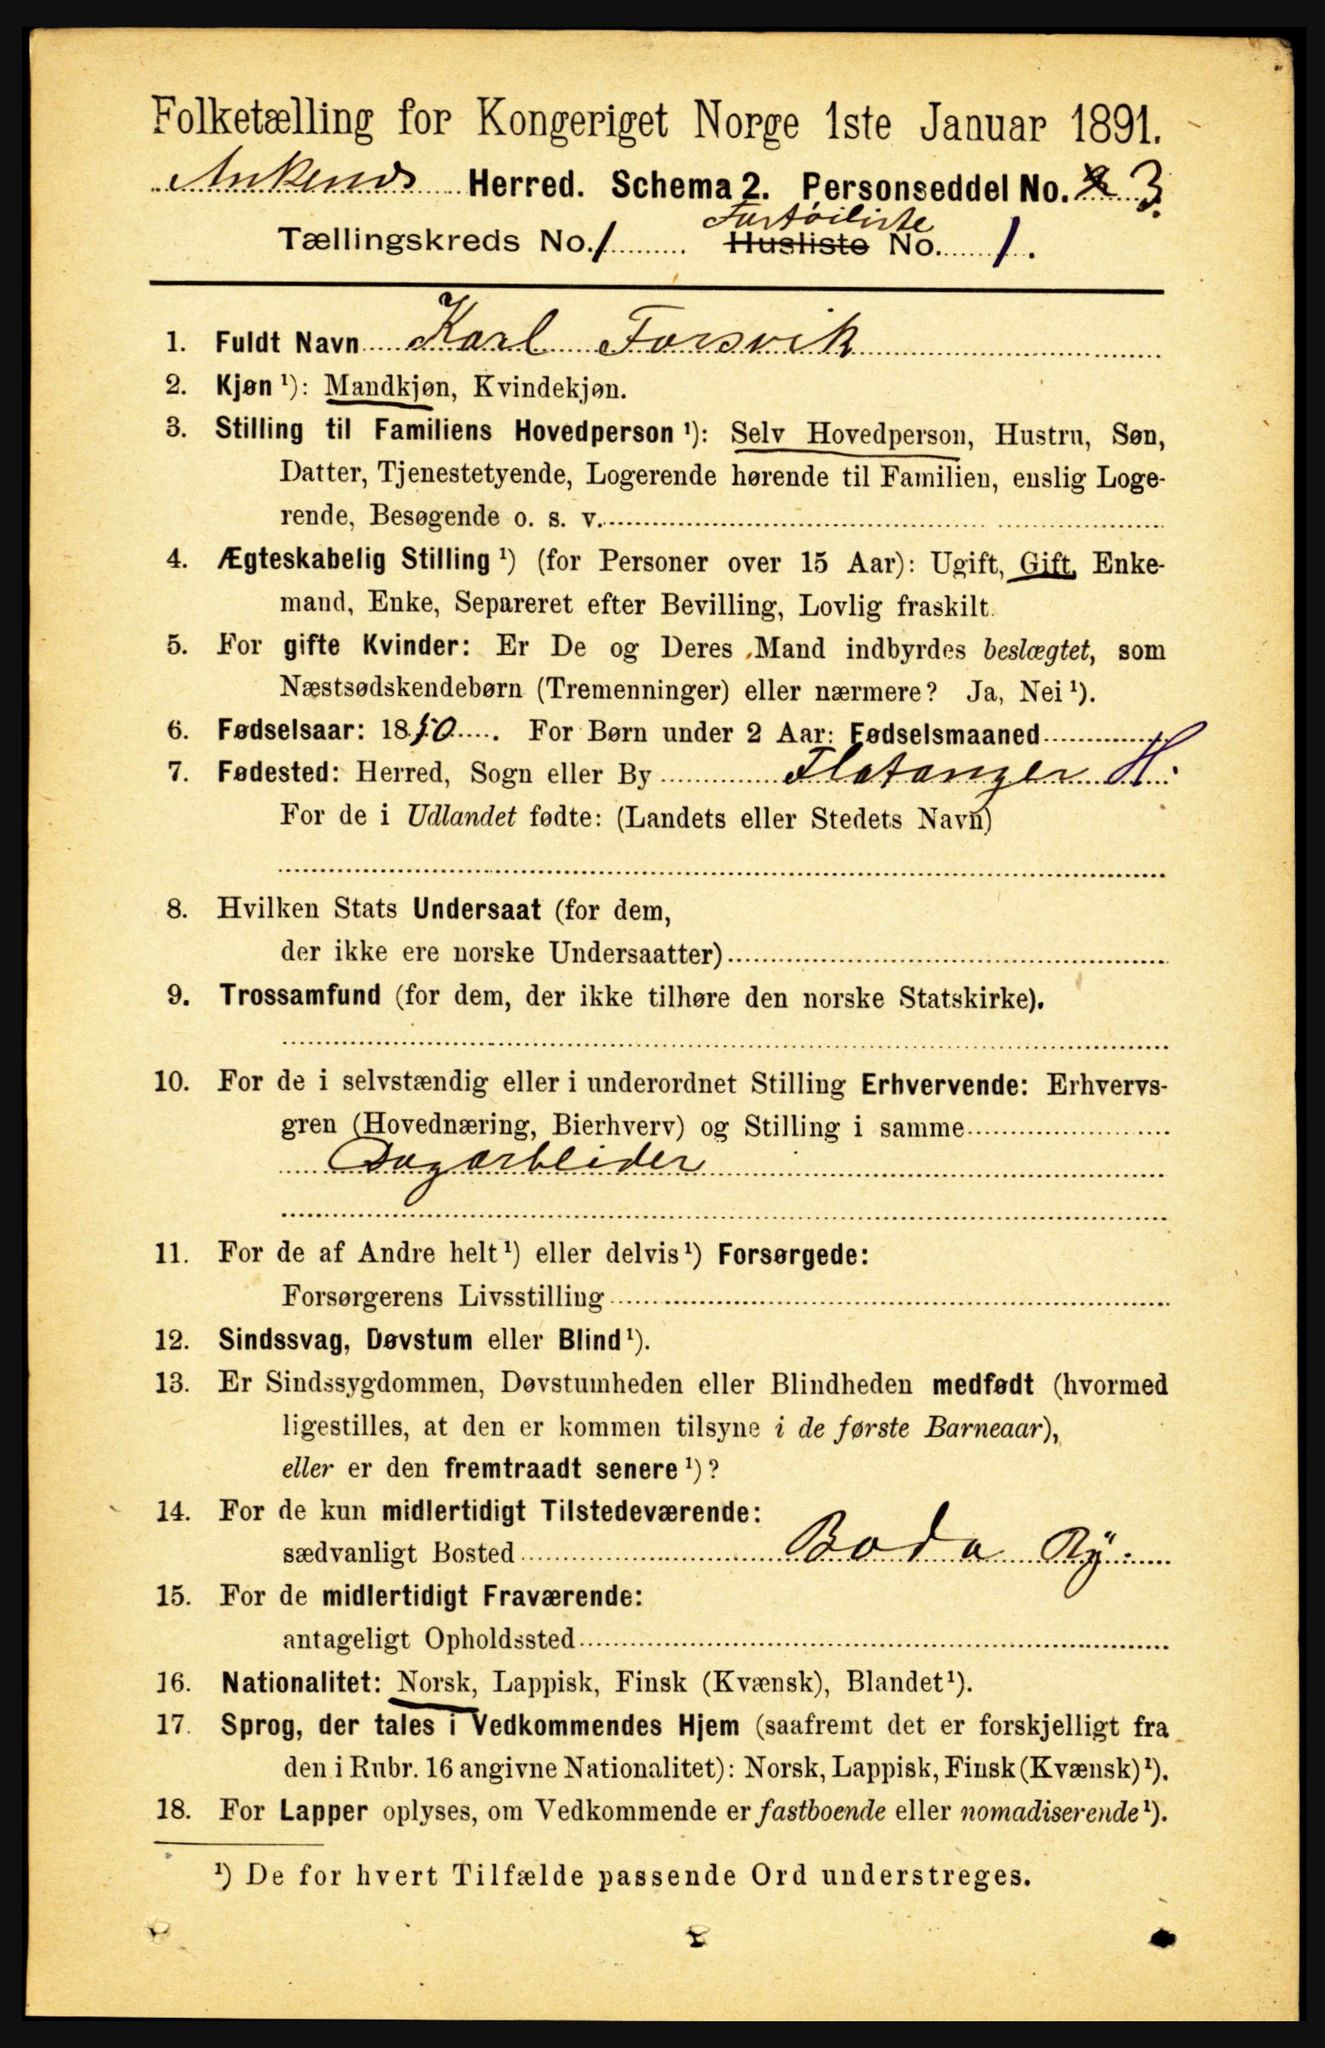 Folketælling for Kongeriget Norge 1ste Januar 1891.
Ankenes Herred. Schema 2. Personseddel No. 3.
Fartøiliste
Tællingskreds No. 1 Husliste No. 1.
1. Fuldt Navn Karl Forsvik
2. Kjøn ¹): Mandkjøn, Kvindekjøn.
3. Stilling til Familiens Hovedperson ¹): Selv Hovedperson, Hustru, Søn,
Datter, Tjenestetyende, Logerende hørende til Familien, enslig Loge-
rende, Besøgende o. s. v.
4. Ægteskabelig Stilling ¹) (for Personer over 15 Aar): Ugift, Gift, Enke-
mand, Enke, Separeret efter Bevilling, Lovlig fraskilt.
5. For gifte Kvinder: Er De og Deres Mand indbyrdes beslægtet, som
Næstsødskendebørn (Tremenninger) eller nærmere? Ja, Nei ¹).
6. Fødselsaar: 1850. For Børn under 2 Aar: Fødselsmaaned
7. Fødested: Herred, Sogn eller By Flatanger H.
For de i Udlandet fødte: (Landets eller Stedets Navn)
8. Hvilken Stats Undersaat (for dem,
der ikke ere norske Undersaatter)
9. Trossamfund (for dem, der ikke tilhøre den norske Statskirke).
10. For de i selvstændig eller i underordnet Stilling Erhvervende: Erhvervs-
gren (Hovednæring, Bierhverv) og Stilling i samme
Dagarbeider
11. For de af Andre helt ¹) eller delvis ¹) Forsørgede:
Forsørgerens Livsstilling
12. Sindssvag, Døvstum eller Blind ¹).
13. Er Sindssygdommen, Døvstumheden eller Blindheden medfødt (hvormed
ligestilles, at den er kommen tilsyne i de første Barneaar),
eller er den fremtraadt senere ¹)?
14. For de kun midlertidigt Tilstedeværende:
sædvanligt Bosted Bodø By
15. For de midlertidigt Fraværende:
antageligt Opholdssted
16. Nationalitet: Norsk, Lappisk, Finsk (Kvænsk), Blandet ¹).
17. Sprog, der tales i Vedkommendes Hjem (saafremt det er forskjelligt fra
den i Rubr. 16 angivne Nationalitet): Norsk, Lappisk, Finsk (Kvænsk) ¹).
18. For Lapper oplyses, om Vedkommende er fastboende eller nomadiserende ¹).
¹) De for hvert Tilfælde passende Ord understreges.